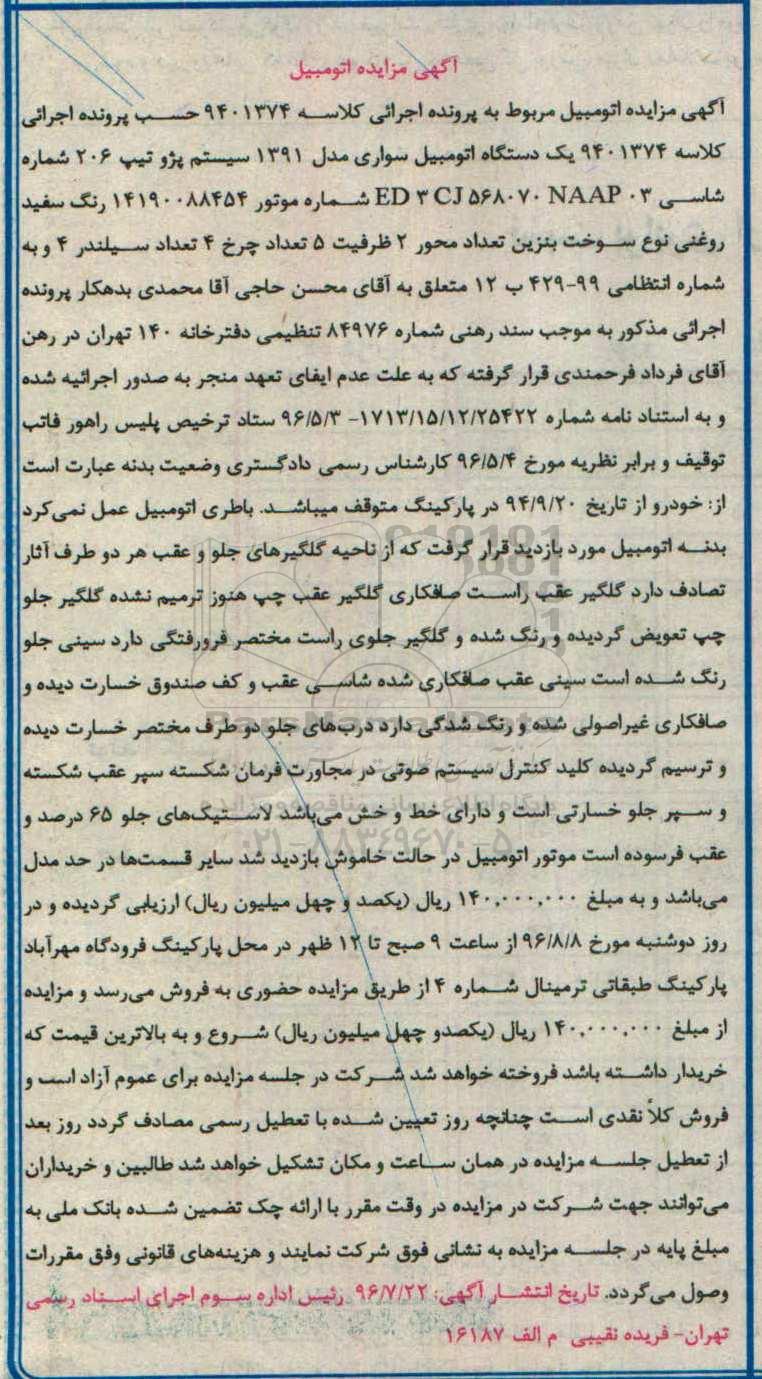 آگهی مزایده اتومبیل
آگهی مزایده اتومبیل مربوط به پرونده اجرائی کلاسه ۹۴۰۱۳۷۴ حسب پرونده اجرائی
کلاسه ۹۴۰۱۳۷۴ یک دستگاه اتومبیل سواری مدل ۱۳۹۱ سیستم پژو تیپ ۲۰۶ شماره
شاسی ED ۳ CJ ۵۶۸۰۷۰ NAAP ۰۳ شماره موتور ۱۴۱۹۰۰۸۸۴۵۴ رنگ سفید
روغنی نوع سوخت بنزین تعداد محور ۲ ظرفیت ۵ تعداد چرخ ۴ تعداد سیلندر ۴ و به
شماره انتظامی ۹۹-۴۲۹ ب ۱۲ متعلق به آقای محسن حاجی آقا محمدی بدهکار پرونده
اجرائی مذکور به موجب سند رهنی شماره ۸۴۹۷۶ تنظیمی دفترخانه ۱۴۰ تهران در رهن
آقای فرداد فرحمندی قرار گرفته که به علت عدم ایفای تعهد منجر به صدور اجرائیه شده
و به استناد نامه شماره ۱۷۱۳/۱۵/۱۲/۲۵۴۲۲- ۹۶/۵/۳ ستاد ترخیص پلیس راهور فاتب
توقیف و برابر نظریه مورخ ۹۶/۵/۴ کارشناس رسمی دادگستری وضعیت بدنه عبارت است
از: خودرو از تاریخ ۹۴/۹/۲۰ در پارکینگ متوقف میباشد. باطری اتومبیل عمل نمی‌کرد
بدنه اتومبیل مورد بازدید قرار گرفت که از ناحیه گلگیرهای جلو و عقب هر دو طرف آثار
تصادف دارد گلگیر عقب راست صافکاری گلگیر عقب چپ هنوز ترمیم نشده گلگیر جلو
چپ تعویض گردیده و رنگ شده و گلگیر جلوی راست مختصر فرورفتگی دارد سینی جلو
رنگ شده است سینی عقب صافکاری شده شاسی عقب و کف صندوق خسارت دیده و
صافکاری غیراصولی شده و رنگ شدگی دارد درب‌های جلو دو طرف مختصر خسارت دیده
و ترسیم گردیده کلید کنترل سیستم صوتی در مجاورت فرمان شکسته سپر عقب شکسته
و سپر جلو خسارتی است و دارای خط و خش می‌باشد لاستیک‌های جلو ۶۵ درصد و
عقب فرسوده است موتور اتومبیل در حالت خاموش بازدید شد سایر قسمت‌ها در حد مدل
می‌باشد و به مبلغ ۱۴۰,۰۰۰,۰۰۰ ریال (یکصد و چهل میلیون ریال) ارزیابی گردیده و در
روز دوشنبه مورخ ۹۶/۸/۸ از ساعت ۹ صبح تا ۱۲ ظهر در محل پارکینگ فرودگاه مهرآباد
پارکینگ طبقاتی ترمینال شماره ۴ از طریق مزایده حضوری به فروش می‌رسد و مزایده
از مبلغ ۱۴۰,۰۰۰,۰۰۰ ریال (یکصدو چهل میلیون ریال) شروع و به بالاترین قیمت که
خریدار داشته باشد فروخته خواهد شد شرکت در جلسه مزایده برای عموم آزاد است و
فروش کلاً نقدی است چنانچه روز تعیین شده با تعطیل رسمی مصادف گردد روز بعد
از تعطیل جلسه مزایده در همان ساعت و مکان تشکیل خواهد شد طالبین و خریداران
می‌توانند جهت شرکت در مزایده در وقت مقرر با ارائه چک تضمین شده بانک ملی به
مبلغ پایه در جلسه مزایده به نشانی فوق شرکت نمایند و هزینه‌های قانونی وفق مقررات
وصول می‌گردد. تاریخ انتشار آگهی: ۹۶/۷/۲۲ رئیس اداره سوم اجرای اسناد رسمی
تهران- فریده نقیبی م الف ۱۶۱۸۷